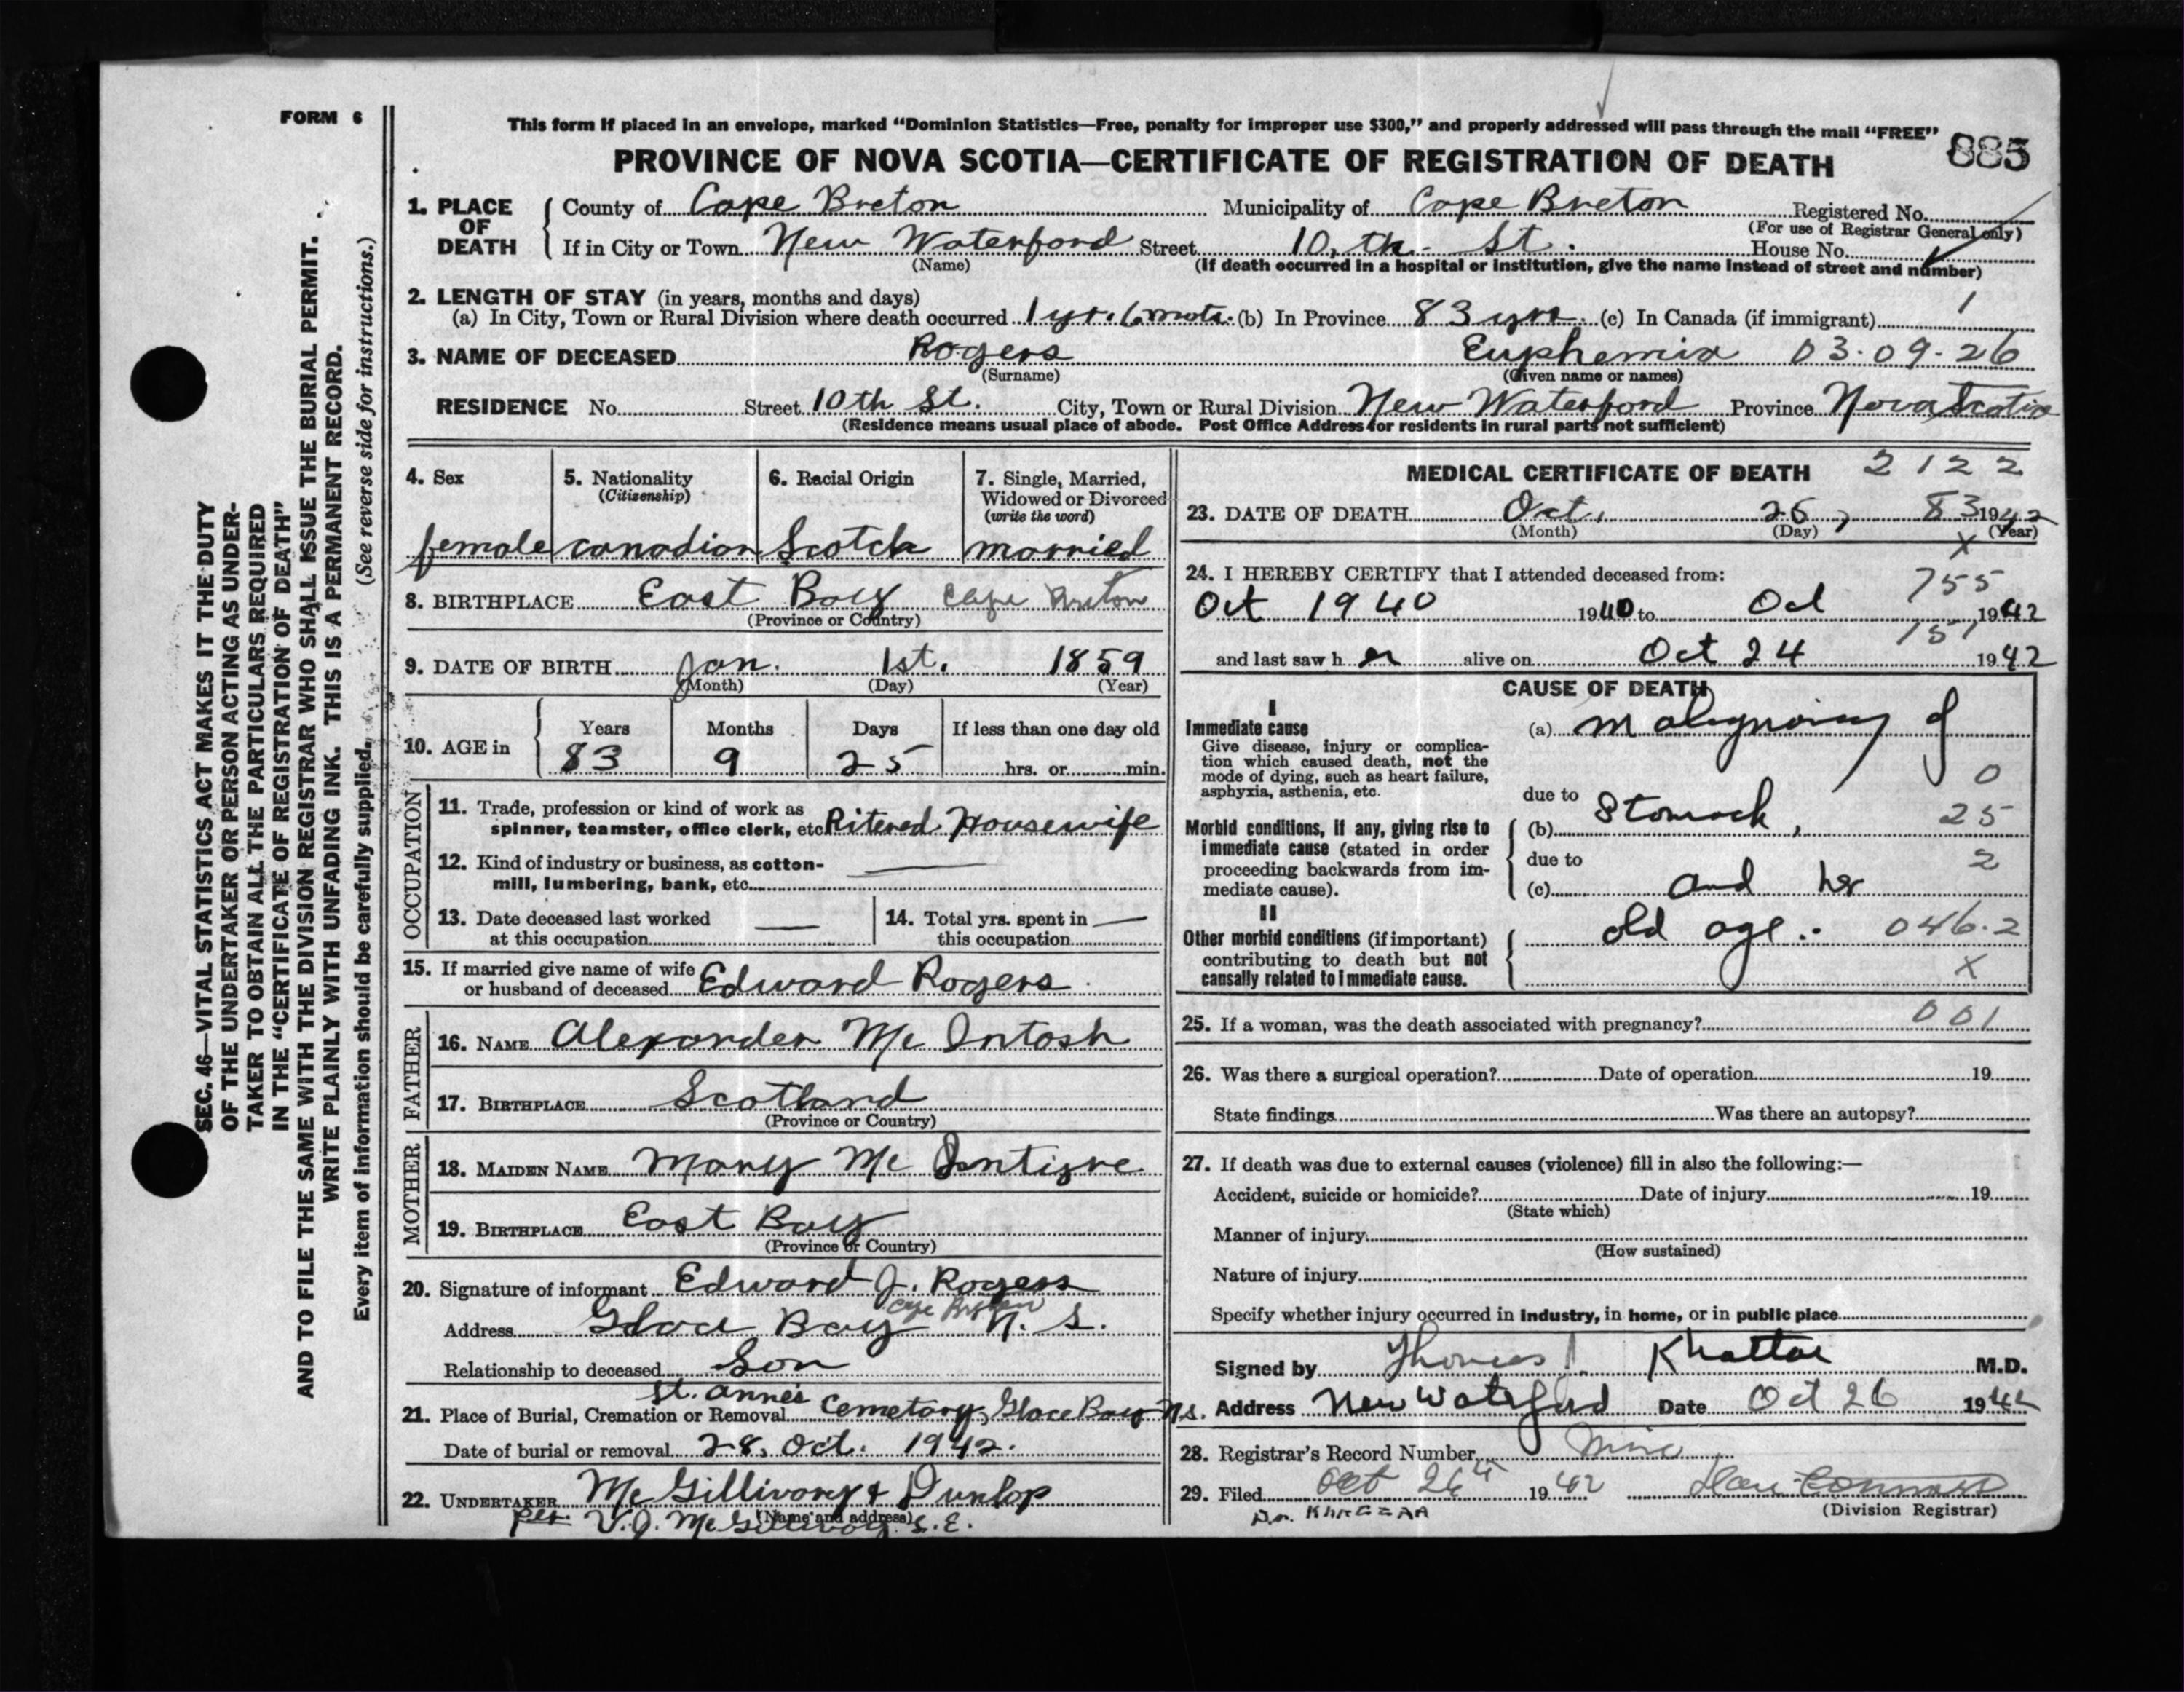 FORM 6
This form if placed in an envelope, marked "Dominion Statistics—Free, penalty for improper use $300," and properly addressed will pass through the mail "FREE"
885
PROVINCE OF NOVA SCOTIA—CERTIFICATE OF REGISTRATION OF DEATH
1. PLACE OF DEATH County of Cape Breton Municipality of Cape Breton Registered No.
(For use of Registrar General only)
If in City or Town New Waterford Street 10th St. House No.
(Name) (If death occurred in a hospital or institution, give the name instead of street and number)
2. LENGTH OF STAY (in years, months and days) 1
(a) In City, Town or Rural Division where death occurred 1 yr. 6 (b) In Province 83 yrs. (c) In Canada (if immigrant)
3. NAME OF DECEASED Rogers Euphemia 03-09-26
(Surname) (Given name or names)
RESIDENCE No. Street 10th St. City, Town or Rural Division New Waterford Province Nova Scotia
(Residence means usual place of abode. Post Office Address for residents in rural parts not sufficient)
4. Sex 5. Nationality (Citizenship) 6. Racial Origin 7. Single, Married, Widowed or Divorced (write the word)
female canadian Scotch married
8. BIRTHPLACE East Bay Cape Breton
(Province or Country)
9. DATE OF BIRTH Jan. 1st. 1859
(Month) (Day) (Year)
10. AGE in Years Months Days If less than one day old
83 9 25 hrs. or min.
OCCUPATION
11. Trade, profession or kind of work as
spinner, teamster, office clerk, etc. Ritered Housewife
12. Kind of industry or business, as cotton-
mill, lumbering, bank, etc. —
13. Date deceased last worked
at this occupation —
14. Total yrs. spent in
this occupation —
15. If married give name of wife
or husband of deceased Edward Rogers
FATHER
16. NAME Alexander Mc Intosh
17. BIRTHPLACE Scotland
(Province or Country)
MOTHER
18. MAIDEN NAME Mary Mc Intigre
19. BIRTHPLACE East Bay
(Province or Country)
20. Signature of informant Edward J. Rogers
Cape Breton
Address Glace Bay N. S.
Relationship to deceased Son
St. Anne's
21. Place of Burial, Cremation or Removal Cemetary, Glace Bay N.S.
Date of burial or removal 28. Oct. 1942.
22. UNDERTAKER Mc Gillivary & Dunlop
(Name and address)
per. V. J. McGillivary L. E.
MEDICAL CERTIFICATE OF DEATH 2122
23. DATE OF DEATH Oct. 26, 83 1942
(Month) (Day) (Year)
X
24. I HEREBY CERTIFY that I attended deceased from: 755
Oct 1940 1940 to Oct 1942
151
and last saw her alive on Oct 24 1942
CAUSE OF DEATH
I
Immediate cause
Give disease, injury or complica-
tion which caused death, not the
mode of dying, such as heart failure,
asphyxia, asthenia, etc.
(a) malignancy of
0
due to
Morbid conditions, if any, giving rise to
immediate cause (stated in order
proceeding backwards from im-
mediate cause).
(b) Stomach, 25
due to 2
(c) and her
II
Other morbid conditions (if important)
contributing to death but not
causally related to immediate cause.
old age.. 046.2
X
25. If a woman, was the death associated with pregnancy? 001
26. Was there a surgical operation? Date of operation 19
State findings Was there an autopsy?
27. If death was due to external causes (violence) fill in also the following:—
Accident, suicide or homicide? Date of injury 19
(State which)
Manner of injury
(How sustained)
Nature of injury
Specify whether injury occurred in industry, in home, or in public place
Signed by Thomas Khattar M.D.
Address New Waterford Date Oct 26 1942
28. Registrar's Record Number
29. Filed Oct 26th 1942
(Division Registrar)
SEC. 46—VITAL STATISTICS ACT MAKES IT THE DUTY
OF THE UNDERTAKER OR PERSON ACTING AS UNDER-
TAKER TO OBTAIN ALL THE PARTICULARS REQUIRED
IN THE "CERTIFICATE OF REGISTRATION OF DEATH"
AND TO FILE THE SAME WITH THE DIVISION REGISTRAR WHO SHALL ISSUE THE BURIAL PERMIT.
WRITE PLAINLY WITH UNFADING INK. THIS IS A PERMANENT RECORD.
Every item of information should be carefully supplied. (See reverse side for instructions.)